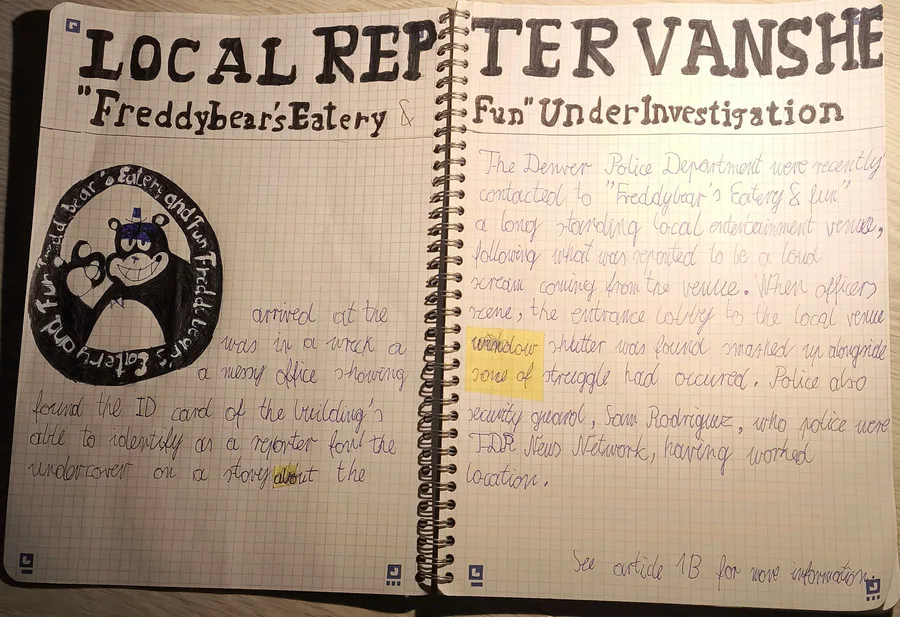 LOCAL REP TER VANSHE
"Freddybear's Eatery & Fun" Under Investigation
Fredd bear's Eatery and Fun Fredd bear's Eatery and Fun
The Denver Police Department were recently
contacted to "Freddybear's Eatery & fun"
a long standing local entertainment venue,
following what was reported to be a loud
scream coming from the venue. When officers
arrived at the scene, the entrance lobby to the local venue
was in a wreck a window shutter was found smashed up alongside
a messy office showing some of struggle had occured. Police also
found the ID card of the building's security guard, Sam Rodriguez, who police were
able to identify as a reporter fom the FDR News Network, having worked
undercover on a story about the location.
See article 1B for more information.